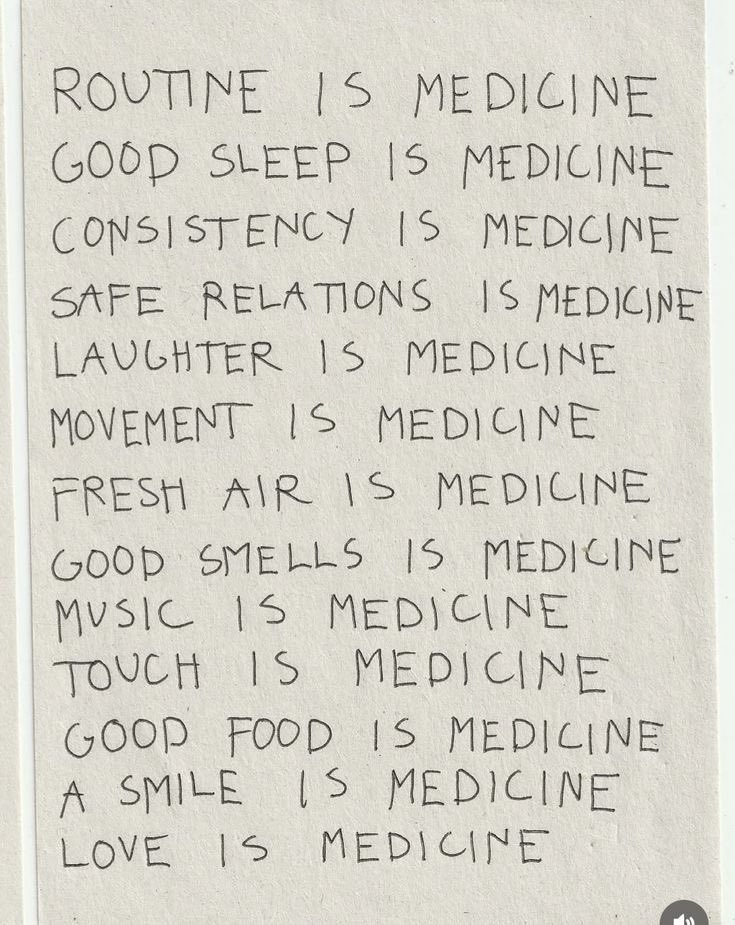 ROUTINE IS MEDICINE
GOOD SLEEP IS MEDICINE
CONSISTENCY IS MEDICINE
SAFE RELATIONS IS MEDICINE
LAUGHTER IS MEDICINE
MOVEMENT IS MEDICINE
FRESH AIR IS MEDICINE
GOOD SMELLS IS MEDICINE
MUSIC IS MEDICINE
TOUCH IS MEDICINE
GOOD FOOD IS MEDICINE
A SMILE IS MEDICINE
LOVE IS MEDICINE